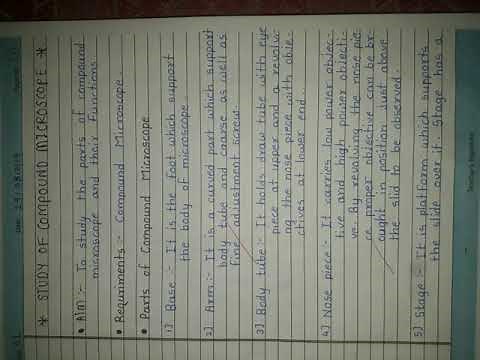 * STUDY OF COMPOUND MICROSCOPE *
• AIM :- To study the parts of compound
microscope and their functions
• Requriments :- Compound Microscope
• Parts of Compound Microscope
1] Base :- It is the foot which support
the body of microscope.
2] Arm :- It is a curved part which support
body tube and coarse as well as
fine adjustment screw.
3] Body tube :- It holds draw tube with eye
piece at upper and a revolvi-
ng the nose piece with obje-
ctives at lower end.
4] Nose piece :- It carries low power objec-
tive and high power objecti-
ve. By revolving the nose pie-
ce proper objective can be br-
ought in position just above
the slid to be observed.
5] Stage :- It is platform which supports
the slide over it. Stage has a
Teacher's Signature